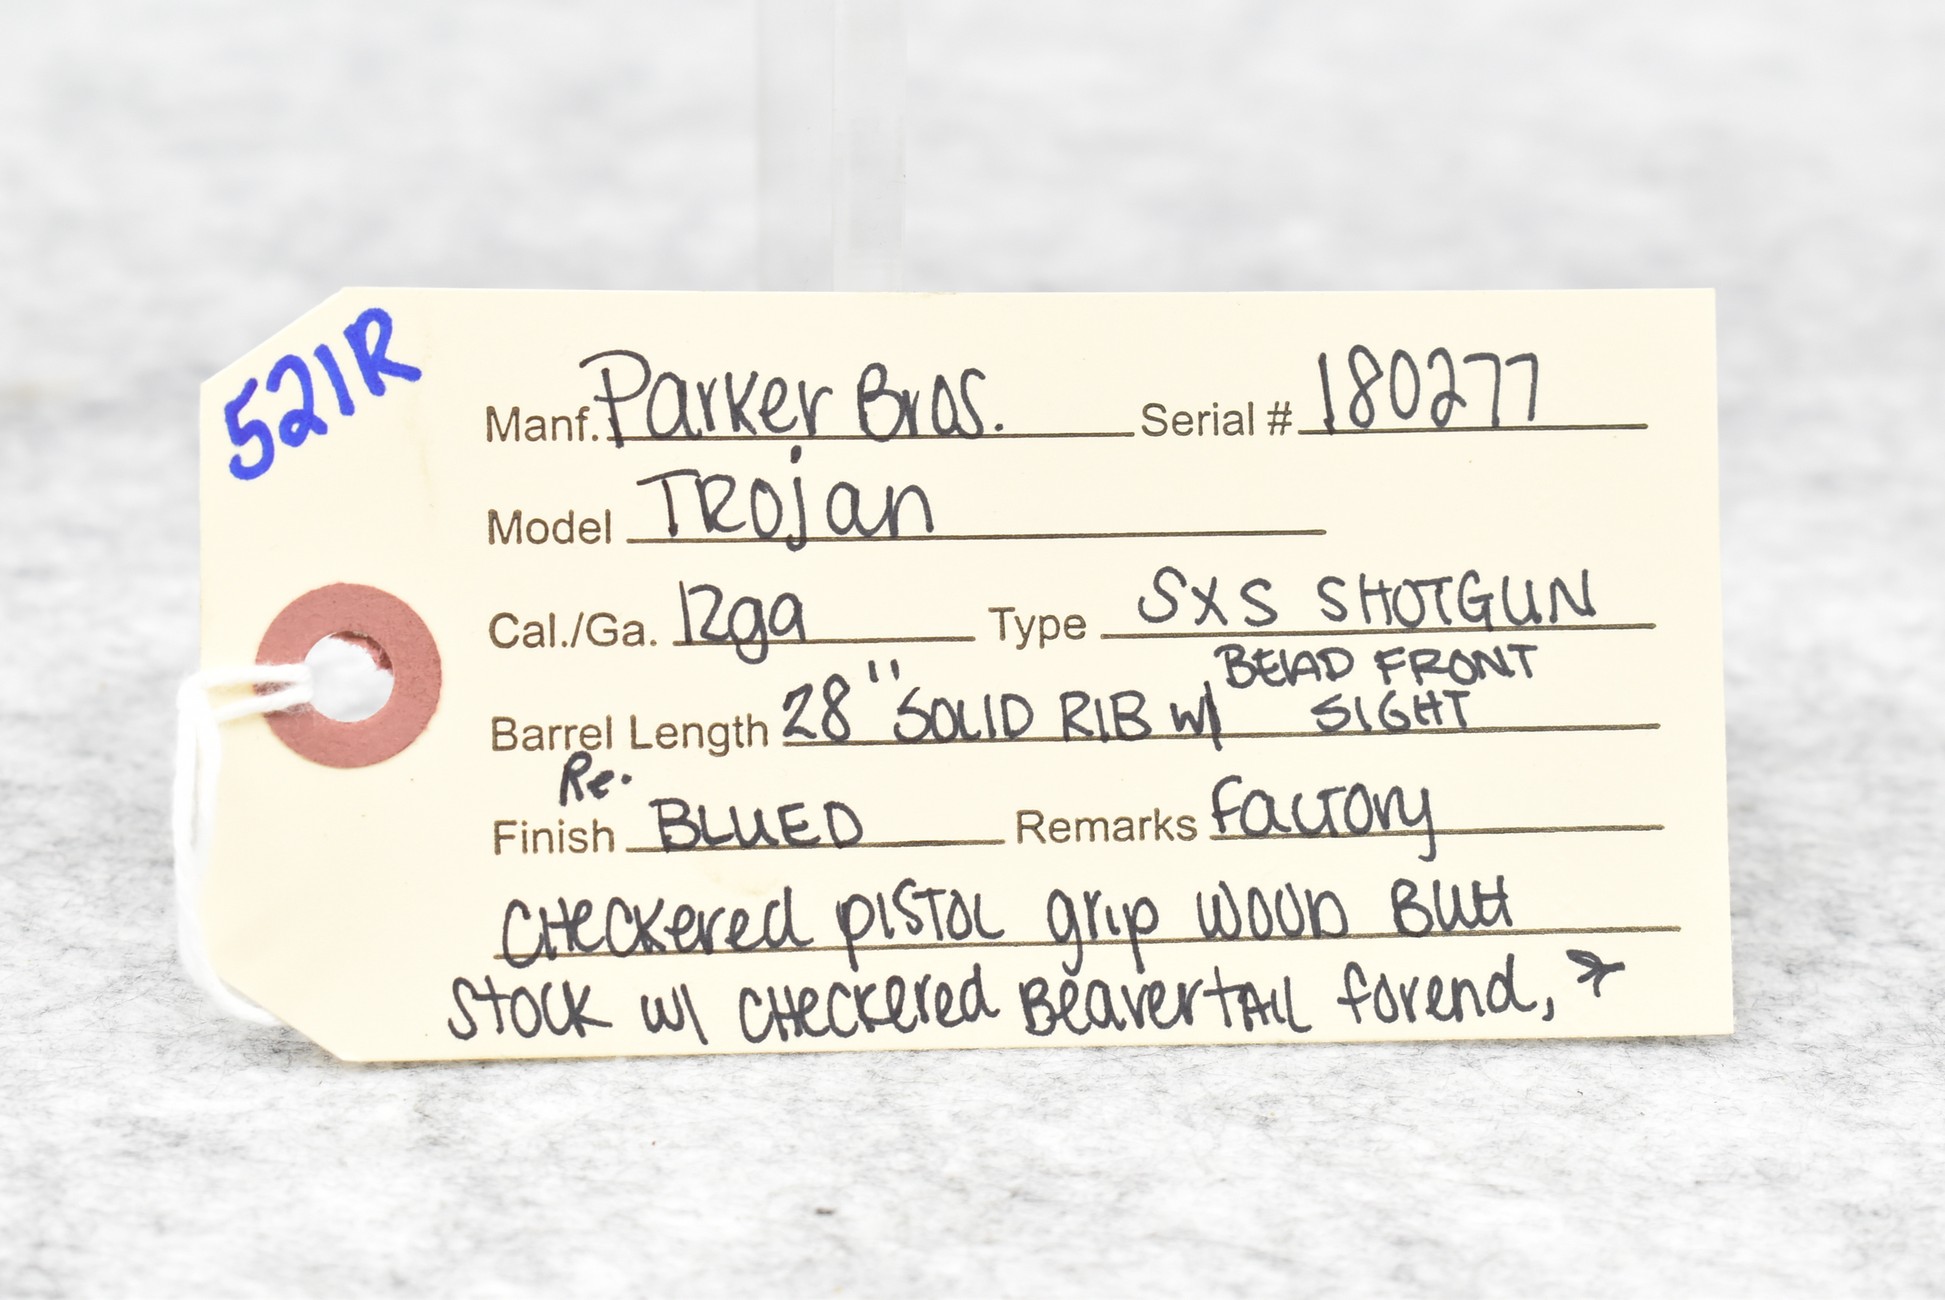 521R
Manf. Parker Bros. Serial # 180277
Model TROjan
Cal./Ga. 12ga Type SXS SHOTGUN
Barrel Length 28" SOLID RIB w/ BEAD FRONT
SIGHT
Re.
Finish BLUED Remarks factory
CHeckered pISTOL grip WOOD Butt
Stock w/ CHeckered BeavertAIL forend, *